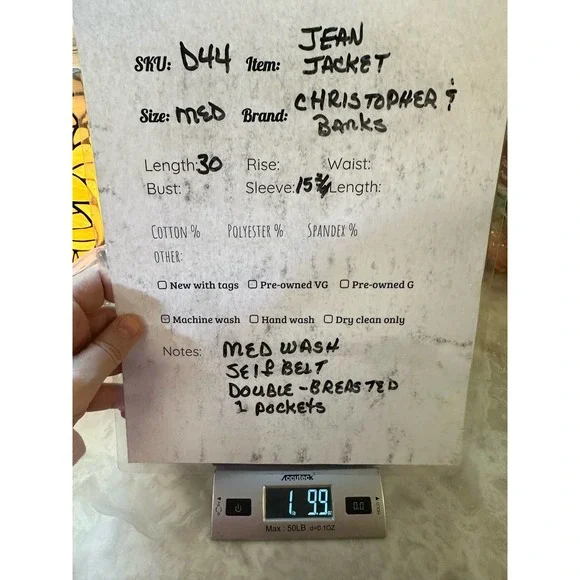 SKU: D44 Item: JEAN JACKET
Size: MED Brand: CHRISTOPHER & BANKS
Length: 30 Rise: Waist:
Bust: Sleeve: 15 3/4 Length:
COTTON % POLYESTER % SPANDEX %
OTHER:
New with tags Pre-owned VG Pre-owned G
Machine wash Hand wash Dry clean only
Notes: MED WASH
SELF BELT
DOUBLE-BREASTED
2 POCKETS
Accuteck
1 9.9
0.0
Max: 50LB d=0.1OZ